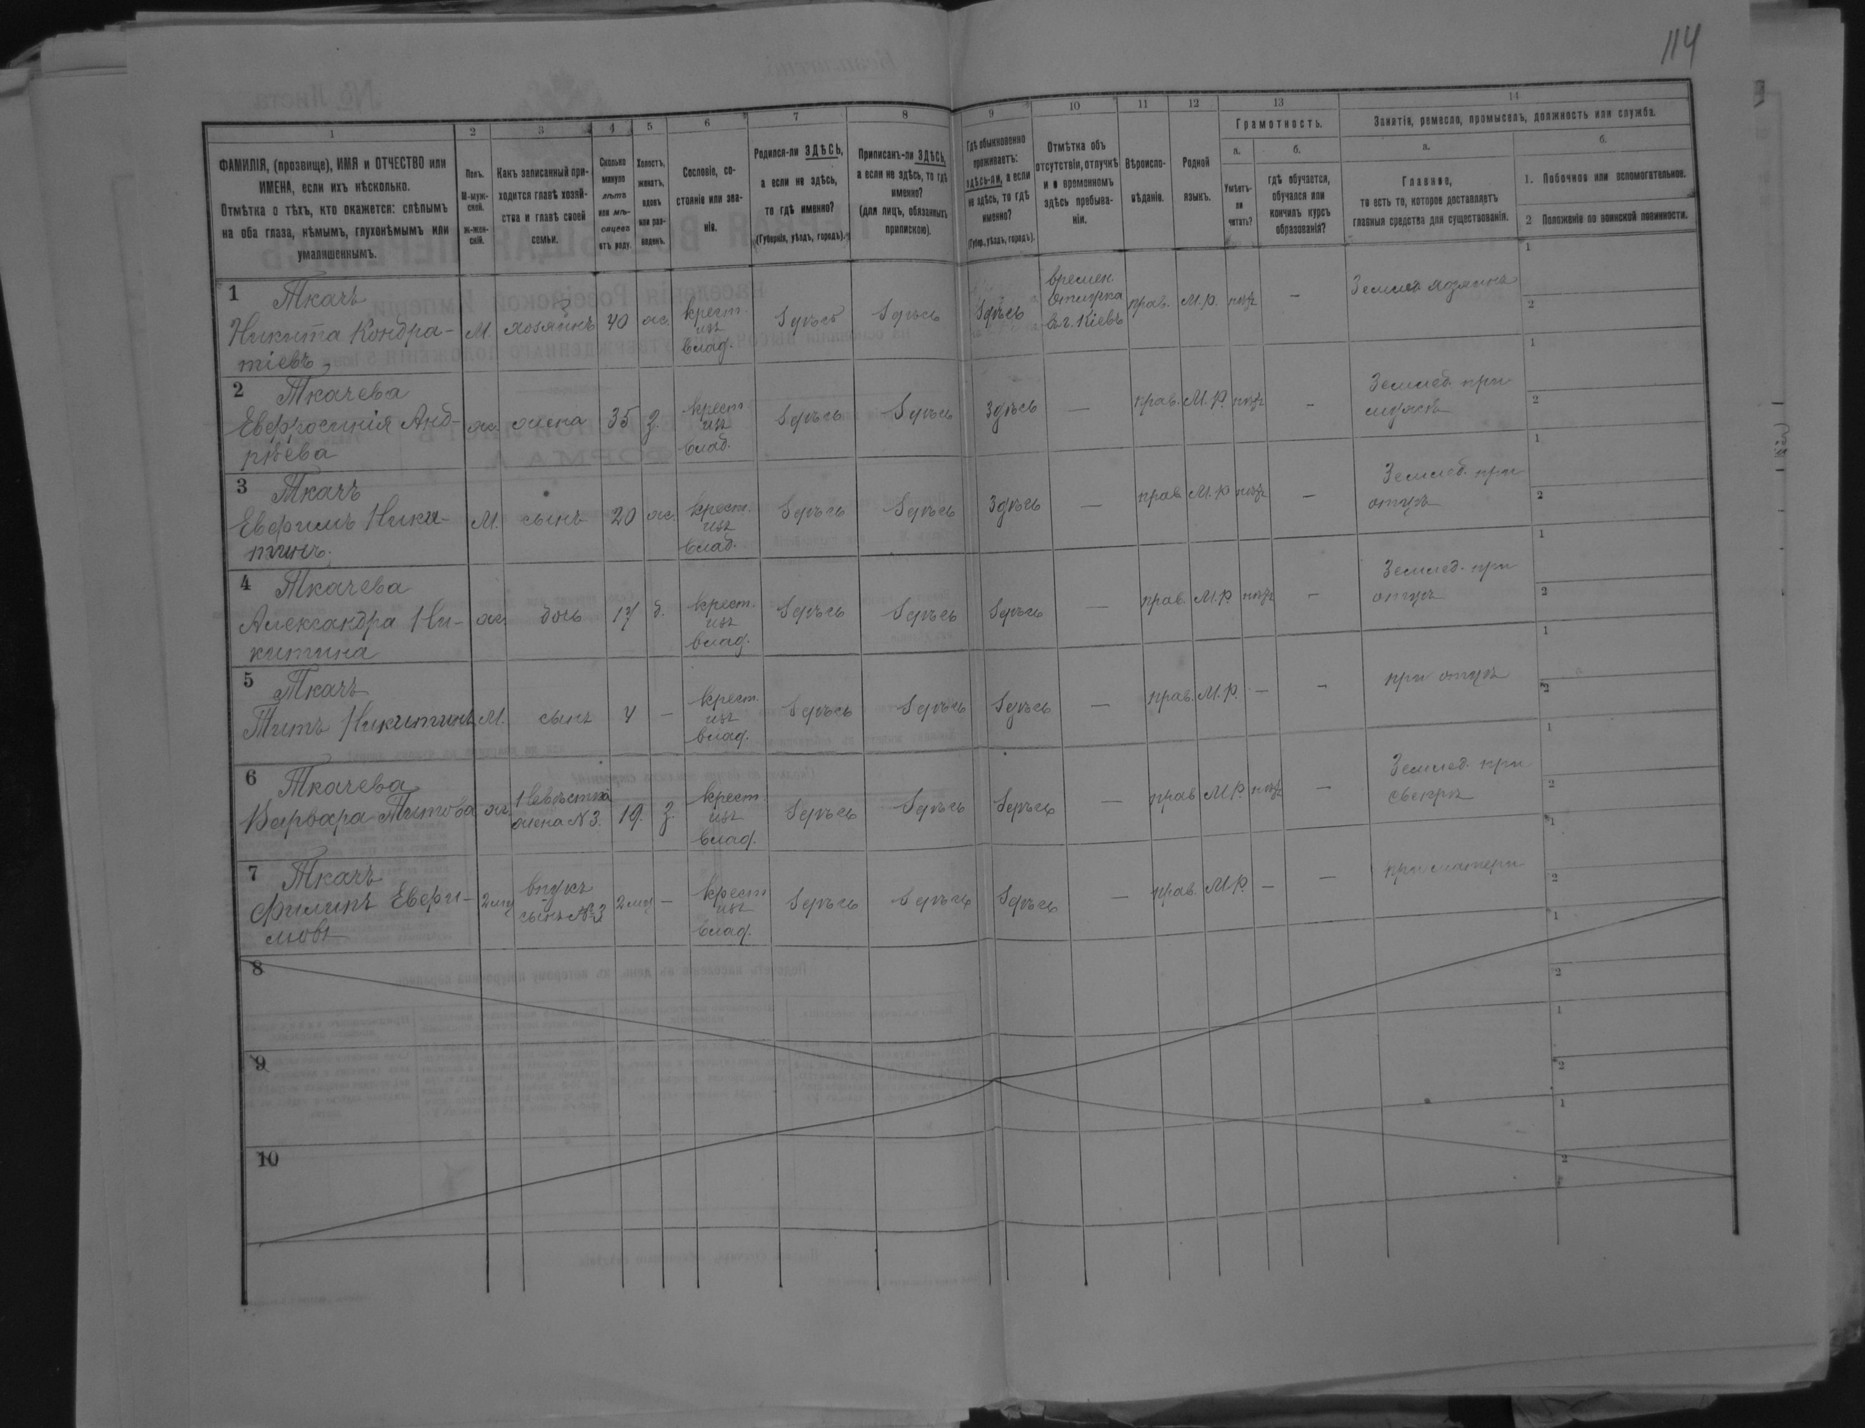 114
1 2 3 4 5 6 7 8 9 10 11 12 13 14
ФАМИЛІЯ, (прозвище), ИМЯ и ОТЧЕСТВО или
ИМЕНА, если ихъ нѣсколько.
Отмѣтка о тѣхъ, кто окажется: слѣпымъ
на оба глаза, нѣмымъ, глухонѣмымъ или
умалишеннымъ.
Полъ.
М-муж-
ской.
Ж-жен-
скій.
Какъ записанный при-
ходится главѣ хозяй-
ства и главѣ своей
семьи.
Сколько
минуло
лѣтъ
или мѣ-
сяцевъ
отъ роду.
Холостъ,
женатъ,
вдовъ
или раз-
веденъ.
Сословіе, со-
стояніе или зва-
ніе.
Родился-ли ЗДѢСЬ,
а если не здѣсь,
то гдѣ именно?
(Губернія, уѣздъ, городъ).
Приписанъ-ли ЗДѢСЬ,
а если не здѣсь, то гдѣ
именно?
(для лицъ, обязанныхъ
припискою).
Гдѣ обыкновенно
проживаетъ:
здѣсь-ли, а если
не здѣсь, то гдѣ
именно?
(Губер., уѣздъ, городъ).
Отмѣтка объ
отсутствіи, отлучкѣ
и о временномъ
здѣсь пребыва-
ніи.
Вѣроиспо-
вѣданіе.
Родной
языкъ.
Грамотность.
а.
Умѣетъ-
ли
читать?
б.
гдѣ обучается,
обучался или
кончилъ курсъ
образованія?
Занятіе, ремесло, промыселъ, должность или служба.
а.
Главное,
то есть то, которое доставляетъ
главныя средства для существованія.
б.
1. Побочное или вспомогательное.
2 Положеніе по воинской повинности.
1 Ткачъ
Никита Кондра-
тіевъ
М. хозяинъ 40 ж. крест.
изъ
влад. Здѣсь Здѣсь Здѣсь времен.
отлучка
в г. Кіевъ прав. М.р. нѣтъ — Землед. хозяинъ 1
2
2 Ткачева
Евфросинія Анд-
рѣева
ж. жена 35 з. крест.
изъ
влад. Здѣсь Здѣсь Здѣсь — прав. М.р. нѣтъ — Землед. при
мужѣ 1
2
3 Ткачъ
Евфимъ Ники-
тинъ.
М. сынъ 20 ж. крест.
изъ
влад. Здѣсь Здѣсь Здѣсь — прав. М.р. нѣтъ — Землед. при
отцѣ 1
2
4 Ткачева
Александра Ни-
китина
ж. дочь 17 д. крест.
изъ
влад. Здѣсь Здѣсь Здѣсь — прав. М.р. нѣтъ — Землед. при
отцѣ 1
2
5 Ткачъ
Титъ Никитинъ
М. сынъ 4 — крест.
изъ
влад. Здѣсь Здѣсь Здѣсь — прав. М.р. — — при отцѣ 1
2
6 Ткачева
Варвара Титова
ж. Невѣстка
жена N 3. 19. з. крест.
изъ
влад. Здѣсь Здѣсь Здѣсь — прав. М.р. нѣтъ — Землед. при
свекрѣ 1
2
7 Ткачъ
Филипъ Евфи-
мовъ
2мц внукъ
сынъ № 3 2мц — крест.
изъ
влад. Здѣсь Здѣсь Здѣсь — прав. М.р. — — при матери 1
2
8 1
2
9 1
2
10 1
2